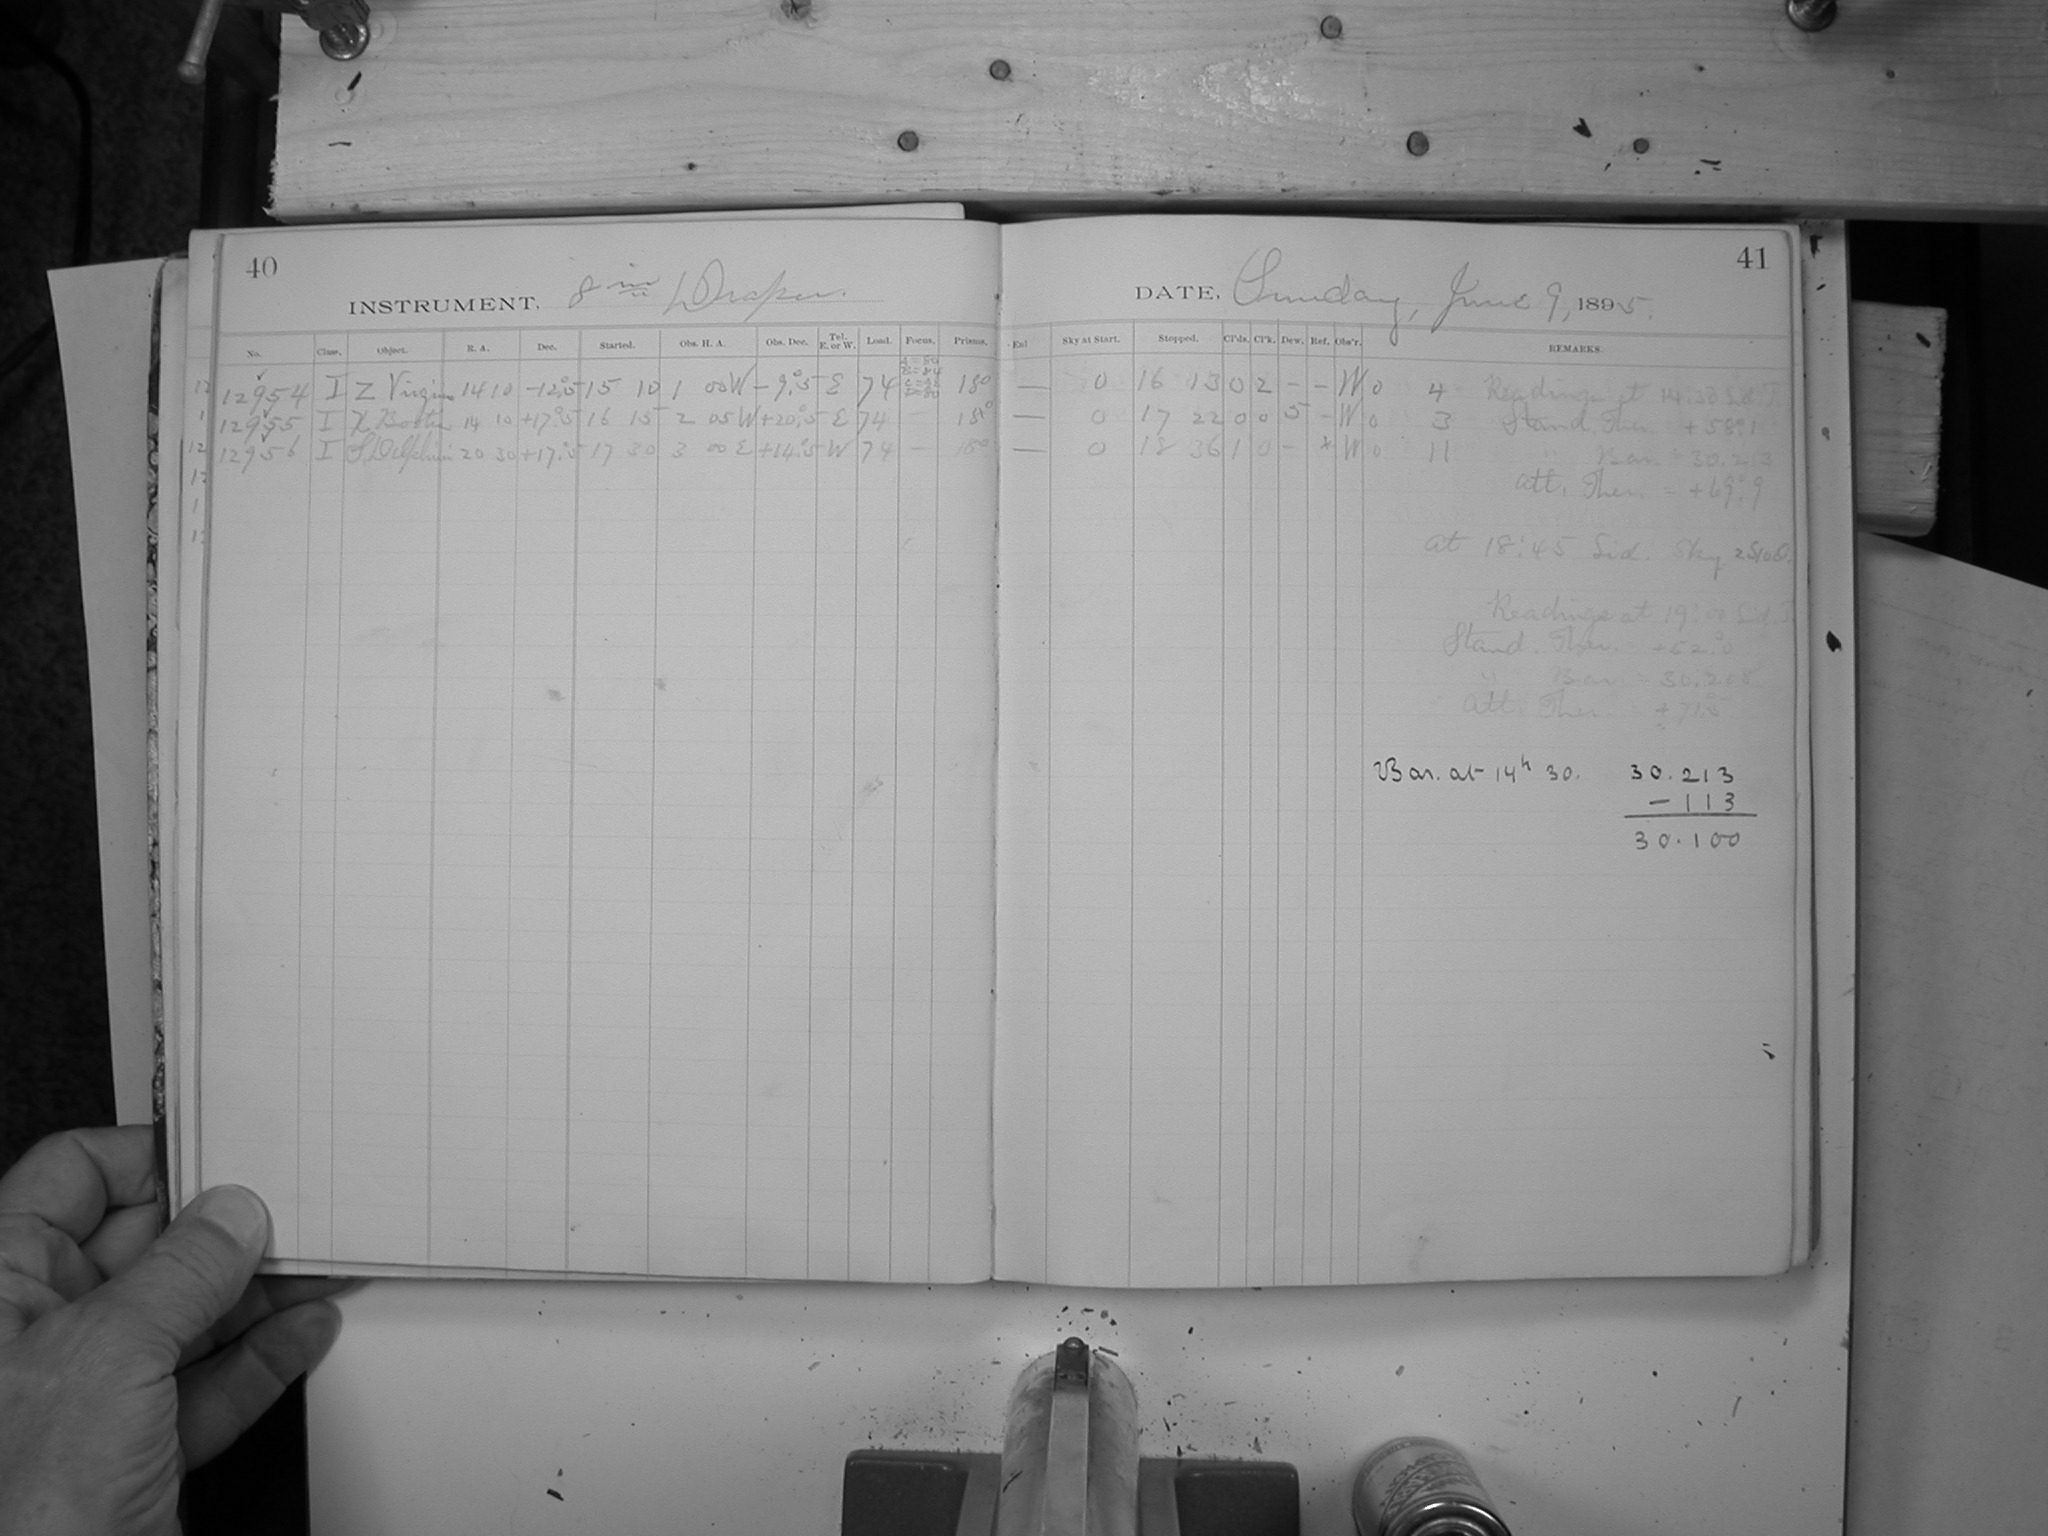 40
INSTRUMENT. 8 in Draper.
No. Class. Object. R. A. Dec. Started. Obs. H. A. Obs. Dec. Tel. E. or W. Load. Focus. Prisms.
12954 I Z Virginis 14 10 -12°.5 15 10 1 00 W -9°.5 E 74 A=80 B=84 15°
12955 I X Bootis 14 10 +17°.5 16 15 2 05 W +20°.5 E 74 — 15°
12956 I S. Delphini 20 30 +17°.5 17 30 3 00 E +14°.5 W 74 — 15°
41
DATE, Sunday, June 9, 1895.
Sky at Start. Stopped. Cl'ds. Cl'k. Dew. Ref. Obs'r. REMARKS.
— 0 16 13 0 2 - - W 0 4 Readings at 14:30 Sid. T.
— 0 17 22 0 0 5 - W 0 3 Stand. Ther. = +58°.1
— 0 18 36 1 0 - * W 0 11 " Bar. = 30.213
Att. Ther. = +69°.9
at 18:45 Sid. Sky
Readings at 19:00 Sid. T.
Stand. Ther. = +52°.0
" Bar. = 30.205
Att. Ther. = +71°.5
Bar. at 14h 30. 30.213
-113
30.100